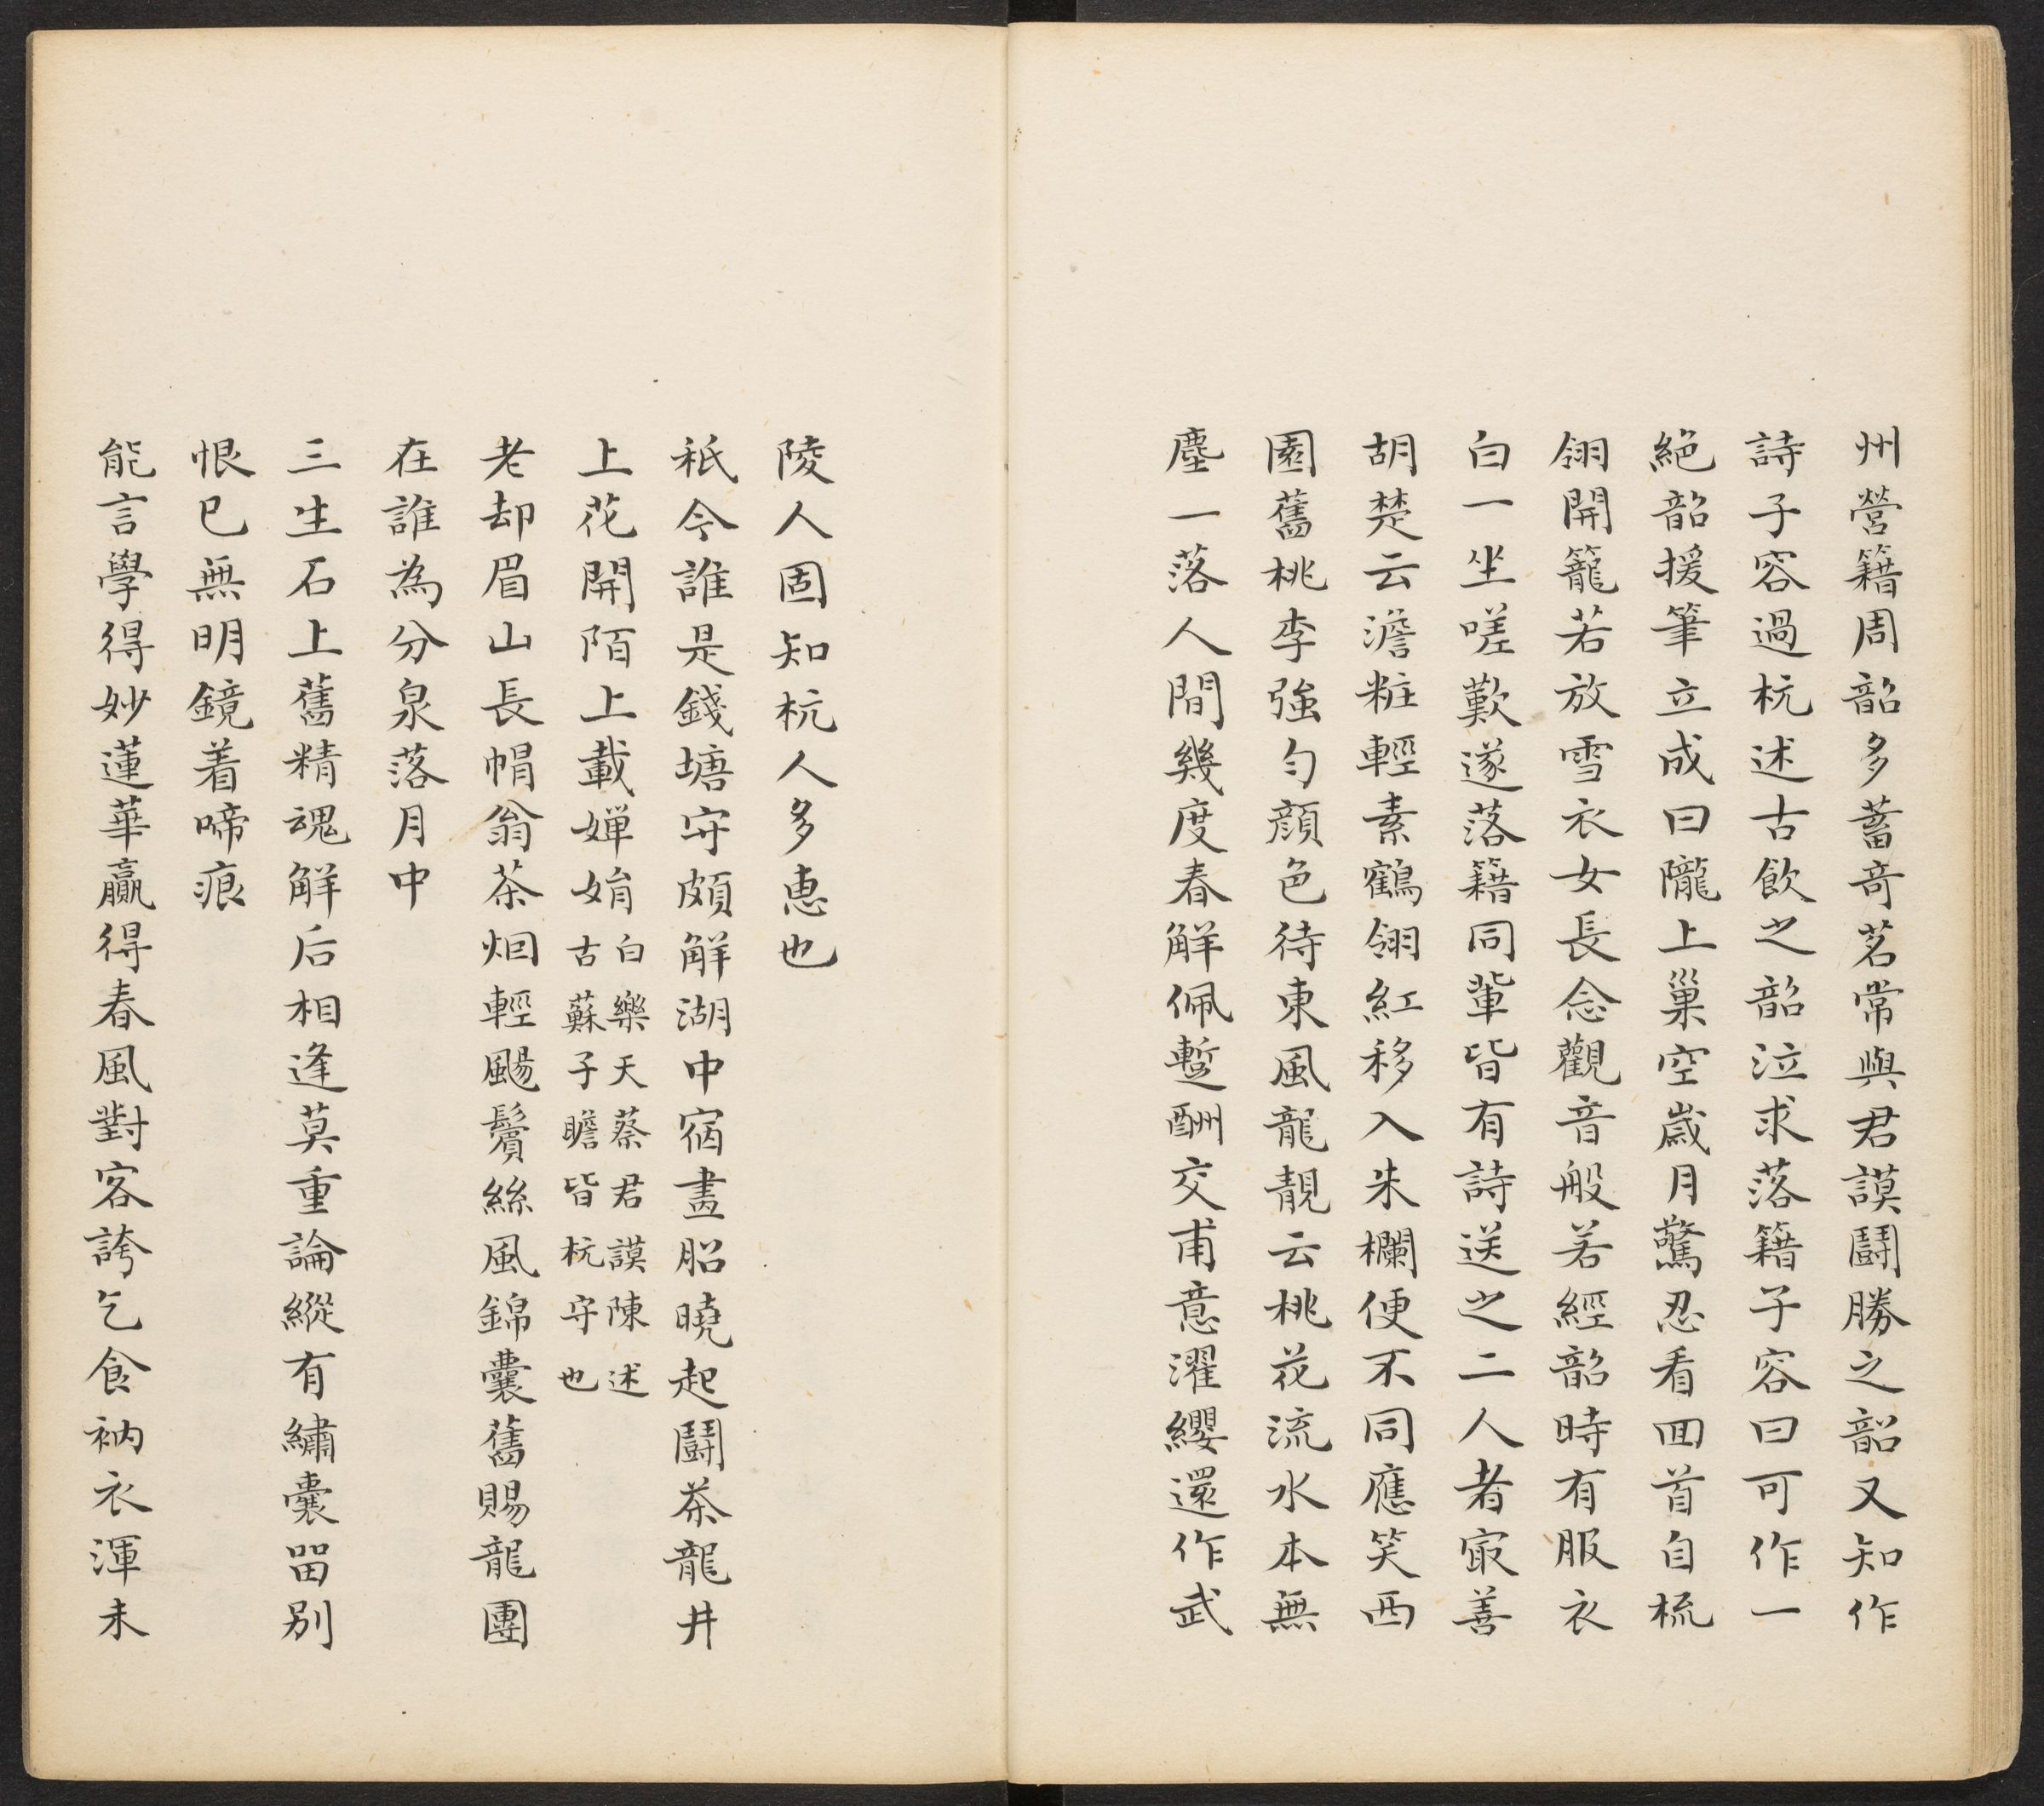 州營籍周韶多蓄奇茗常與君謨鬪勝之韶又知作
詩子容過杭述古飲之韶泣求落籍子容曰可作一
絕韶援筆立成曰隴上巢空歲月驚忍看回首自梳
翎開籠若放雪衣女長念觀音般若經韶時有服衣
白一坐嗟歎遂落籍同輩皆有詩送之二人者冣善
胡楚云澹粧輕素鶴翎紅移入朱欄便不同應笑西
園舊桃李強勻顏色待東風龍靚云桃花流水本無
塵一落人間幾度春解佩蹔酬交甫意濯纓還作武
陵人固知杭人多惠也
祇今誰是錢塘守頗解湖中宿畫船曉起鬪茶龍井
上花開陌上載嬋娟白樂天蔡君謨陳述
古蘇子瞻皆杭守也
老却眉山長帽翁茶烟輕颺鬢絲風錦囊舊賜龍團
在誰為分泉落月中
三生石上舊精魂解后相逢莫重論縱有繡囊留別
恨已無明鏡着啼痕
能言學得妙蓮華贏得春風對客誇乞食衲衣渾未